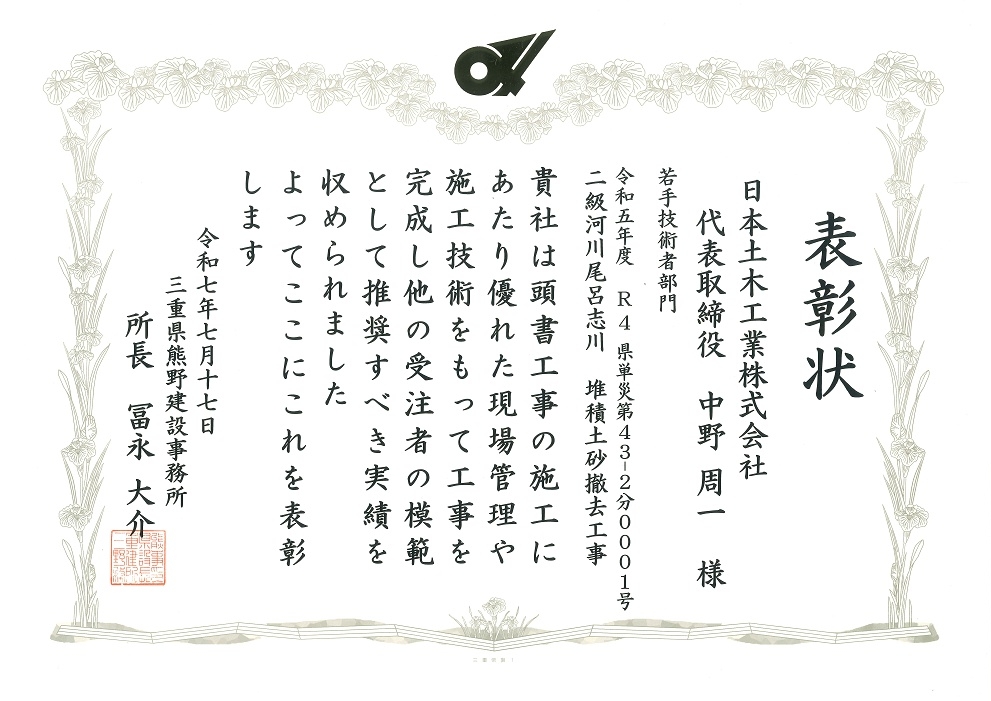 表彰状
日本土木工業株式会社
代表取締役　中野　周一　様
若手技術者部門
令和五年度　Ｒ４県単災第４３－２分０００１号
二級河川尾呂志川　堆積土砂撤去工事
貴社は頭書工事の施工に
あたり優れた現場管理や
施工技術をもって工事を
完成し他の受注者の模範
として推奨すべき実績を
収められました
よってここにこれを表彰
します
令和七年七月十七日
三重県熊野建設事務所
所長　冨永　大介